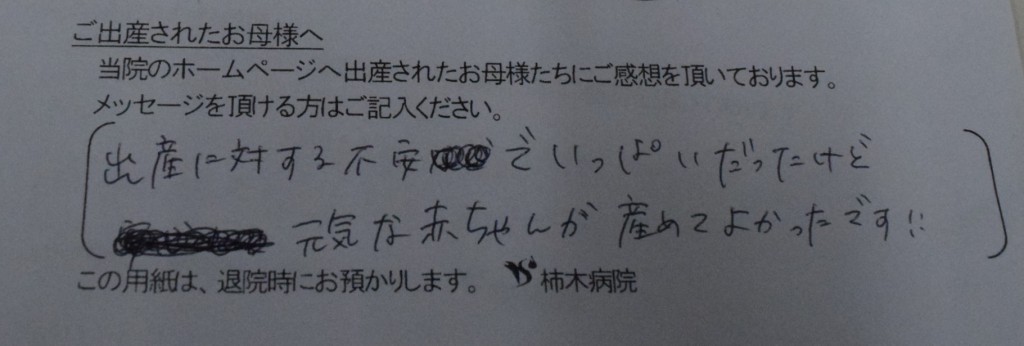 ご出産されたお母様へ
当院のホームページへ出産されたお母様たちにご感想を頂いております。
メッセージを頂ける方はご記入ください。
出産に対する不安でいっぱいだったけど
元気な赤ちゃんが産めてよかったです!!
この用紙は、退院時にお預かりします。 柿木病院